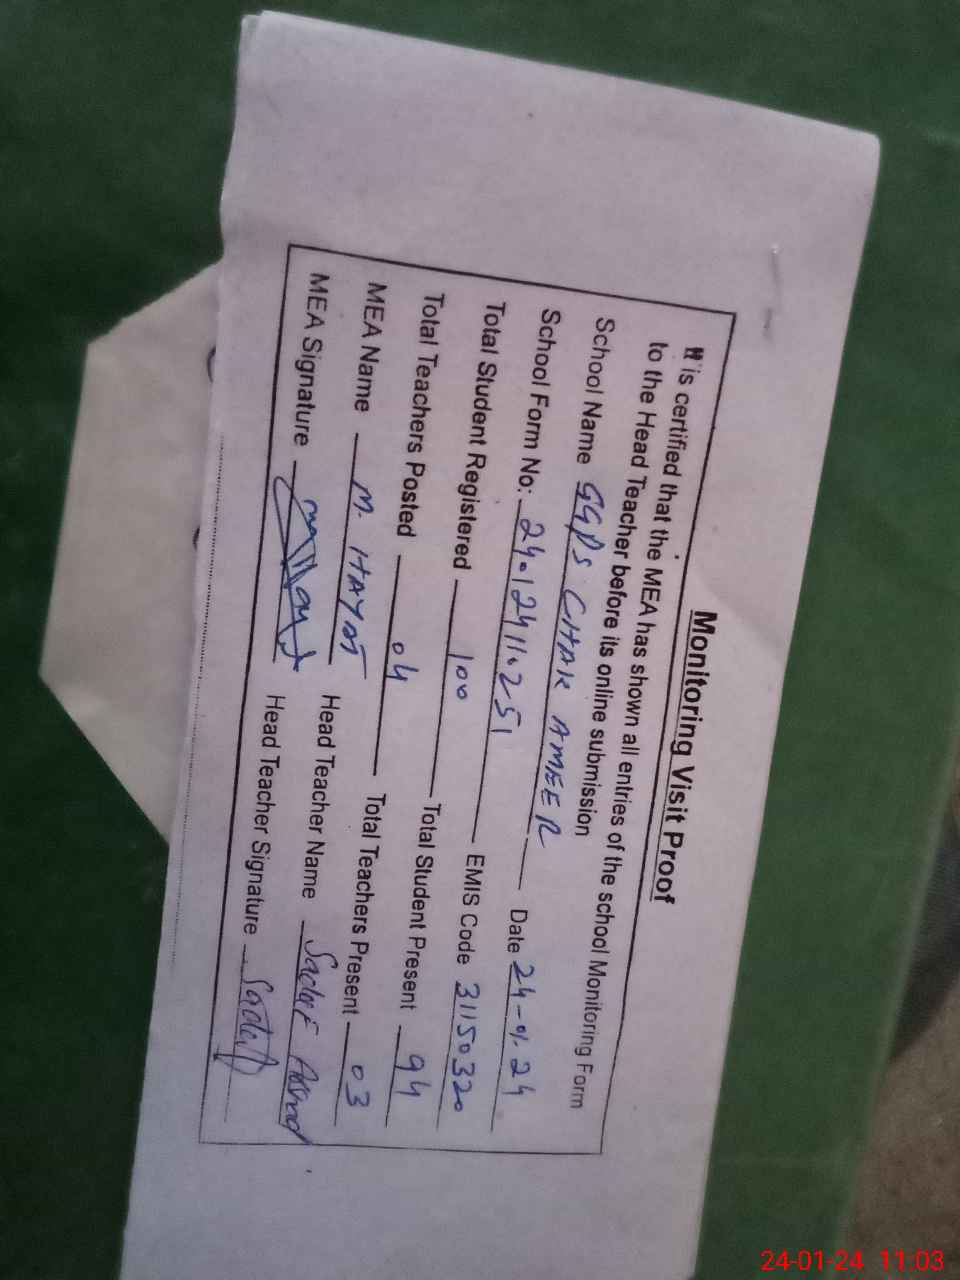 Monitoring Visit Proof
It is certified that the MEA has shown all entries of the school Monitoring Form
to the Head Teacher before its online submission
School Name GGPS CHAK AMEER Date 24-01-24
School Form No: 240124110251 EMIS Code 31150320
Total Student Registered 100 Total Student Present 94
Total Teachers Posted 04 Total Teachers Present 03
MEA Name M. HAYAT Head Teacher Name
MEA Signature Head Teacher Signature
24-01-24 11:03